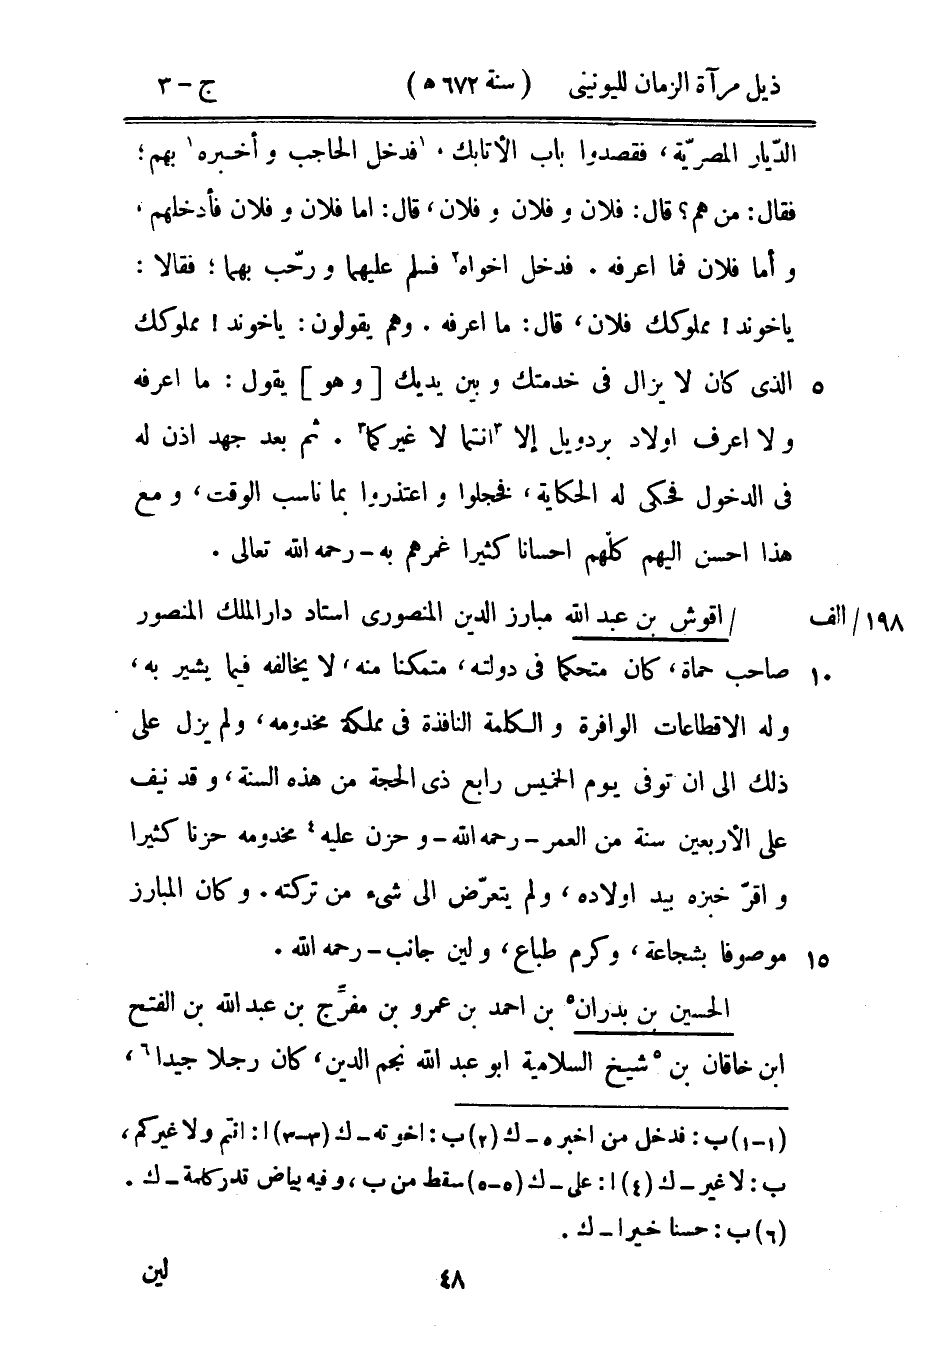 ذيل مرآة الزمان لليونينى (سنة ٦٧٢ ه) ج - ٣
الدّيار المصريّة، فقصدوا باب الأتابك، ١فدخل الحاجب و أخبره١ بهم؛
فقال: من هم؟ قال: فلان و فلان و فلان، قال: اما فلان و فلان فأدخلهم،
و أما فلان فما اعرفه . فدخل اخواه٢ فسلم عليهما و رحّب بهما؛ فقالا :
ياخوند! مملوكك فلان، قال: ما اعرفه . وهم يقولون: ياخوند! مملوكك
الذى كان لا يزال فى خدمتك و بين يديك [ و هو ] يقول : ما اعرفه ٥
و لا اعرف اولاد بردويل إلا ٣انتما لا غيركما٣ . ثم بعد جهد اذن له
فى الدخول فحكى له الحكاية، فخجلوا و اعتذروا بما ناسب الوقت، و مع
هذا احسن اليهم كلّهم احسانا كثيرا غمرهم به - رحمه الله تعالى .
١٩٨/ الف / اقوش بن عبد الله مبارز الدين المنصورى استاد دار الملك المنصور
صاحب حماة، كان متحكما فى دولته، متمكنا منه، لا يخالفه فيما يشير به، ١٠
و له الاقطاعات الوافرة و الكلمة النافذة فى مملكة مخدومه، ولم يزل على
ذلك الى ان توفى يوم الخميس رابع ذى الحجة من هذه السنة، و قد نيف
على الأربعين سنة من العمر - رحمه الله - و حزن عليه٤ مخدومه حزنا كثيرا
و اقرّ خبزه بيد اولاده، ولم يتعرّض الى شىء من تركته . و كان المبارز
موصوفا بشجاعة، وكرم طباع، و لين جانب - رحمه الله . ١٥
الحسين بن بدران٥ بن احمد بن عمرو بن مفرّج بن عبد الله بن الفتح
ابن خاقان بن ٥شيخ السلامية ابو عبد الله نجم الدين، كان رجلا جيدا٦،
(١-١) ب : فدخل من اخبره - ك (٢) ب : اخوته - ك (٣-٣) ا : انتم ولا غيركم،
ب : لا غير - ك (٤) ا : على - ك (٥-٥) سقط من ب، و فيه بياض قدر كلمة - ك .
(٦) ب : حسنا خيرا - ك .
٤٨ لين